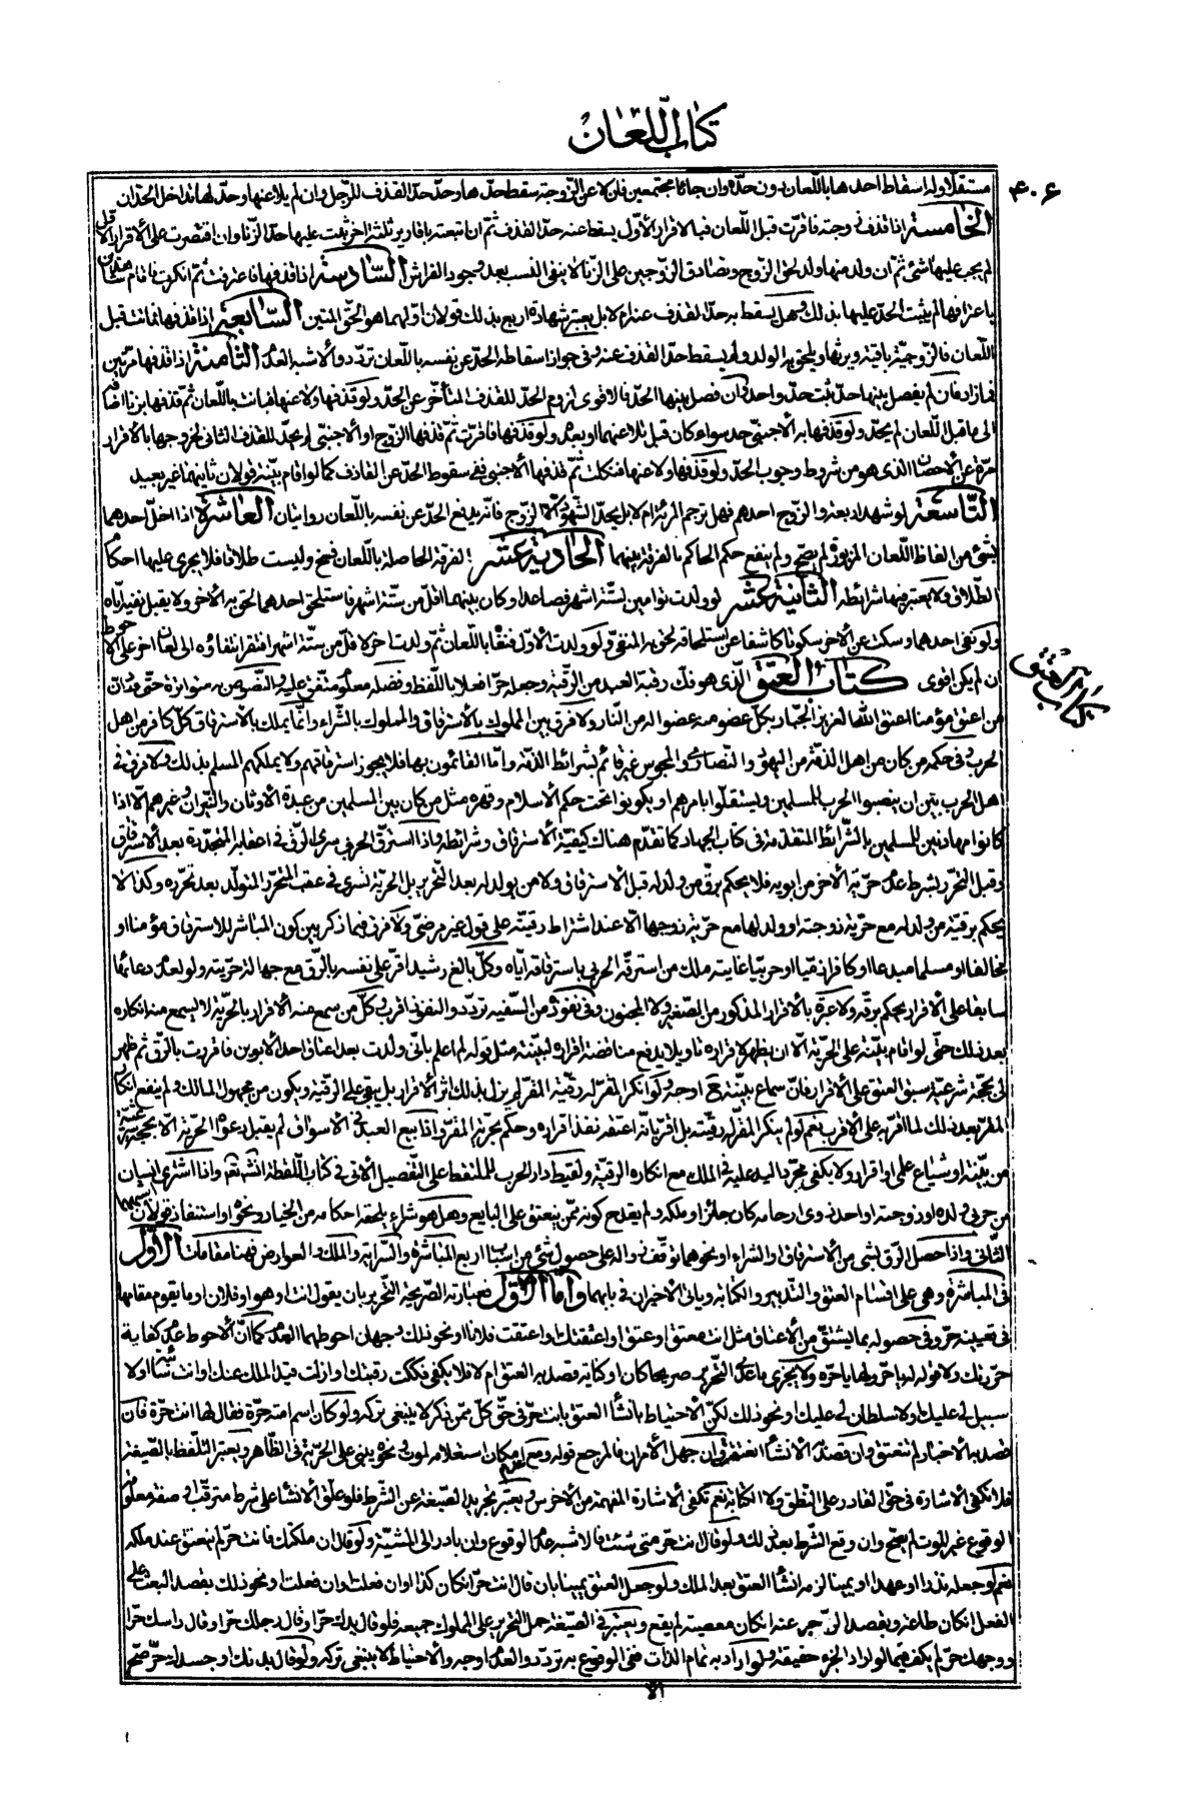 كتاب اللعان
۴۰۶
مستقلا وله اسقاط احدها باللعان دون حده وان جائا مجتمعين فان لاعن الزوجة سقط حدها وحد حد القذف للرجل وان لم يلاعنها وحد لها تداخل الحدان
الخامسة اذا قذف زوجته فاقرت قبل اللعان فبالاقرار الأول يسقط عنه حد القذف ثم ان اتبعته باقارير ثلثة اخر يثبت عليها حد الزنا وان اقتصرت على الأقرار الأول
لم يجب عليها شئ ثم ان ولد منها ولد لحق الزوج وتصادق الزوجين على الزنا لا ينفى النسب بعد وجود الفراش السادسة اذا قذفها فاعترفت ثم انكرت فاقام شاهدان
باعترافها لم يثبت الحد عليها بذلك وهل يسقط به حد القذف عنه ام لا بل يعتبر شهادة اربع بذلك قولان اولهما هو الحق المتين السابعة اذا قذفها فماتت قبل
اللعان فالزوجية باقية ويرثها ويلحق به الولد ولم يسقط حد القذف عنه وفى جواز اسقاطه الحد عن نفسه باللعان تردد والأشبه العدم الثامنة اذا قذفها مرتين
فما زاد فان لم يفصل بينها حد يثبت حد واحد وان فصل بينها الحد فالاقوى لزوم الحد للقذف المتأخر عن الحد ولو قذفها ولاعنها فبانت باللعان ثم قذفها بزنا اضافه
الى ما قبل اللعان لم يحد ولو قذفها به الأجنبى حد سواء كان قبل تلاعنهما او بعده ولو قذفها فاقرت ثم قذفها الزوج او الأجنبى لم يحد للقذف الثانى لخروجها بالأقرار
مرة عن الأحصان الذى هو من شروط وجوب الحد ولو قذفها ولاعنها فنكلت ثم قذفها الأجنبى ففى سقوط الحد عن القاذف كما لو اقام بينة قولان ثانيهما غير بعيد
التاسعة لو شهد اربعة والزوج احدهم فهل ترجم المرئة ام لا بل يحد الشهود الا الزوج فانه يدفع الحد عن نفسه باللعان روايتان العاشرة اذا اخل احدهما
بشئ من الفاظ اللعان المزبورة لم يصح ولم ينفع حكم الحاكم بالفرقة بينهما الحادية عشر الفرقة الحاصلة باللعان فسخ وليست طلاقا فلا يجرى عليها احكام
الطلاق ولا يعتبر فيها شرائطه الثانية عشر لو ولدت توامين لستة اشهر فصاعدا وكان بينهما اقل من ستة اشهر فاستلحق احدهما لحق به الأخر ولا يقبل نفيه اياه
ولو نفى احدهما وسكت عن الأخر سكوتا كاشفا عن استلحاقه لحق به المنفى ولو ولدت الأول فنفاه باللعان ثم ولدت اخر لاقل من ستة اشهر افتقر انتفاؤه الى لعان اخر على الأحوط
ان لم يكن اقوى كتاب العتق الذى هو فك رقبة العبد من الرقية وجعله حرا فعلا باللفظ وفضله معلوم متفق عليه والنصوص به متواترة حتى ورد ان
كتاب العتق
من اعتق مؤمنا اعتق الله العزيز الجبار بكل عضو منه عضوا له من النار ولا فرق بين المملوك بالأسترقاق والمملوك بالشراء وانما يملك بالأسترقاق كل كافر من اهل
الحرب وفى حكمه من كان من اهل الذمة من اليهود والنصارى والمجوس غير قائم بشرائط الذمة واما القائمون بها فلا يجوز استرقاقهم ولا يملكهم المسلم بذلك ولا فرق فى
اهل الحرب بين ان ينصبوا الحرب للمسلمين ويستقلوا بامرهم او يكونوا تحت حكم الأسلام وقهره مثل من كان بين المسلمين من عبدة الأوثان والنيران وغيرهم الا اذا
كانوا مهادنين للمسلمين بالشرائط المتقدمة فى كتاب الجهاد كما تقدم هناك كيفية الأسترقاق وشرائطه واذا استرق الحربى سرى الرق فى اعقابه المتجددة بعد الأسترقاق
وقبل التحرر بشرط عدم حرية الأخر من ابويه فلا يحكم برق من ولد له قبل الأسترقاق ولا من يولد له بعد التحرير بل الحرية تسرى فى عقب المتحرر المتولد بعد تحرره وكذا لا
يحكم برقية من ولد له مع حرية زوجته او ولد لها مع حرية زوجها الا عند اشتراط رقيته على قول غير مرضى ولا فرق فيما ذكر بين كون المباشر للاسترقاق مؤمنا او
مخالفا او مسلما مبدعا او كافرا ذميا او حربيا غايته ملك من استرقه الحربى باسترقاقه اياه وكل بالغ رشيد اقر على نفسه بالرق مع جهالة حريته ولو لعدم دعائها
سابقا على الأقرار يحكم برقه ولا عبرة بالأقرار المذكور من الصغير ولا المجنون وفى نفوذه من السفيه تردد والنفوذ اقرب وكل من سمع منه الأقرار بالحرية لا يسمع منه انكاره
بعد ذلك حتى لو اقام بينة على الحرية الا ان يظهر لاقراره تاويلا يدفع مناقضة اقراره لبينته مثل قوله لم اعلم بانى ولدت بعد اعتاق احد الأبوين فاقررت بالرق ثم ظهر
لى بحجة شرعية سبق العتق على الأقرار فان سماع بينته ح اوجه ولو انكر المقر له رقية المقر لم يزل بذلك اثر الأقرار بل يبقى على الرقية ويكون من مجهول المالك ولم ينفع انكار
المقر بعد ذلك لما اقر به على الأقرب نعم لو لم ينكر المقر له رقيته بل اقر بانه اعتقه نفذ اقراره وحكم بحرية المقر واذا بيع العبد فى الأسواق لم يقبل دعواه الحرية الا بحجة شرعية
من بينة او شياع علمى او اقرار ولا يكفى مجرد اليد عليه فى الملك مع انكاره الرقية ولقيط دار الحرب للملتقط على التفصيل الأتى فى كتاب اللقطة انشائه تعالى واذا اشترى انسان
من حربى ولده او زوجته او احد ذوى ارحامه كان جائزا وملكه ولم يقدح كونه ممن ينعتق على البايع وهل هو شراء يلحقه احكامه من الخيار ونحوه او استنقاذ قولان اشبههما
الثانى واذا حصل الرق بشئ من الأسترقاق او الشراء او نحوهما توقف زواله على حصول شئ من اسباب اربع المباشرة والسراية والملك والعوارض فهنا مقامات الأول
فى المباشرة وهى على اقسام العتق والتدبير والكتابة وياتى الأخيران فى بابهما واما الأول فعبارته الصريحة التحرير بان يقول انت او هو او فلان او ما يقوم مقامها
فى تعيينه حر وفى حصوله بما يشتق من الأعتاق مثل انت معتق او عتيق او اعتقتك او اعتقت فلانا او نحو ذلك وجهان احوطهما العدم كما ان الأحوط عدم كفاية
حررتك ولا قوله له يا حر ولها يا حرة ولا يجزى ما عدا التحرير صريحا كان او كناية قصد به العتق ام لا فلا يكفى فككت رقبتك او ازلت قيد الملك عنك او انت سائبة او لا
سبيل لى عليك او لا سلطان لى عليك او نحو ذلك لكن الأحتياط بانشاء العتق بانت حر فى حق كل ممن ذكر لا ينبغى تركه ولو كان اسم امته حرة فقال لها انت حرة فان
قصد به الأخبار لم تنعتق وان قصد به الأنشاء انعتقت وان جهل الأمران فالمرجع قوله ومع عدم امكان استعلامه لموت ونحوه يبنى على الحرية فى الظاهر ويعتبر التلفظ بالصيغة
فلا تكفى الأشارة فى حق القادر على النطق ولا الكتابة نعم تكفى الأشارة المفهمة من الأخرس ويعتبر تجريد الصيغة عن الشرط فلو علق الأنشاء على شرط مترقب او صفة معلوم
الوقوع غير الموت لم يصح وان وقع الشرط بعد ذلك ولو قال انت حر متى شئت فالاشبه عدم الوقوع وان بادر الى المشية ولو قال ان ملكتك فانت حر لم ينعتق عند ملكه
نعم لو جعله نذرا او عهدا او يمينا لزمه انشاء العتق بعد الملك ولو جعل العتق يمينا بان قال انت حر ان كان كذا او ان فعلت وان فعلت ونحو ذلك بقصد البعث على
الفعل ان كان طاعة وبقصد الزجر عنه ان كان معصية لم يقع ويعتبر فى الصيغة حمل التحرير على المملوك جميعه فلو قال يدك حر او قال رجلك حر او قال راسك حر
ووجهك حر لم يكف فيما لو اراد الجزء حقيقة ولو اراد به تمام الذات ففى الوقوع به تردد والعدم اوجه والأحتياط لا ينبغى تركه ولو قال بدنك او جسدك حر صح
الا